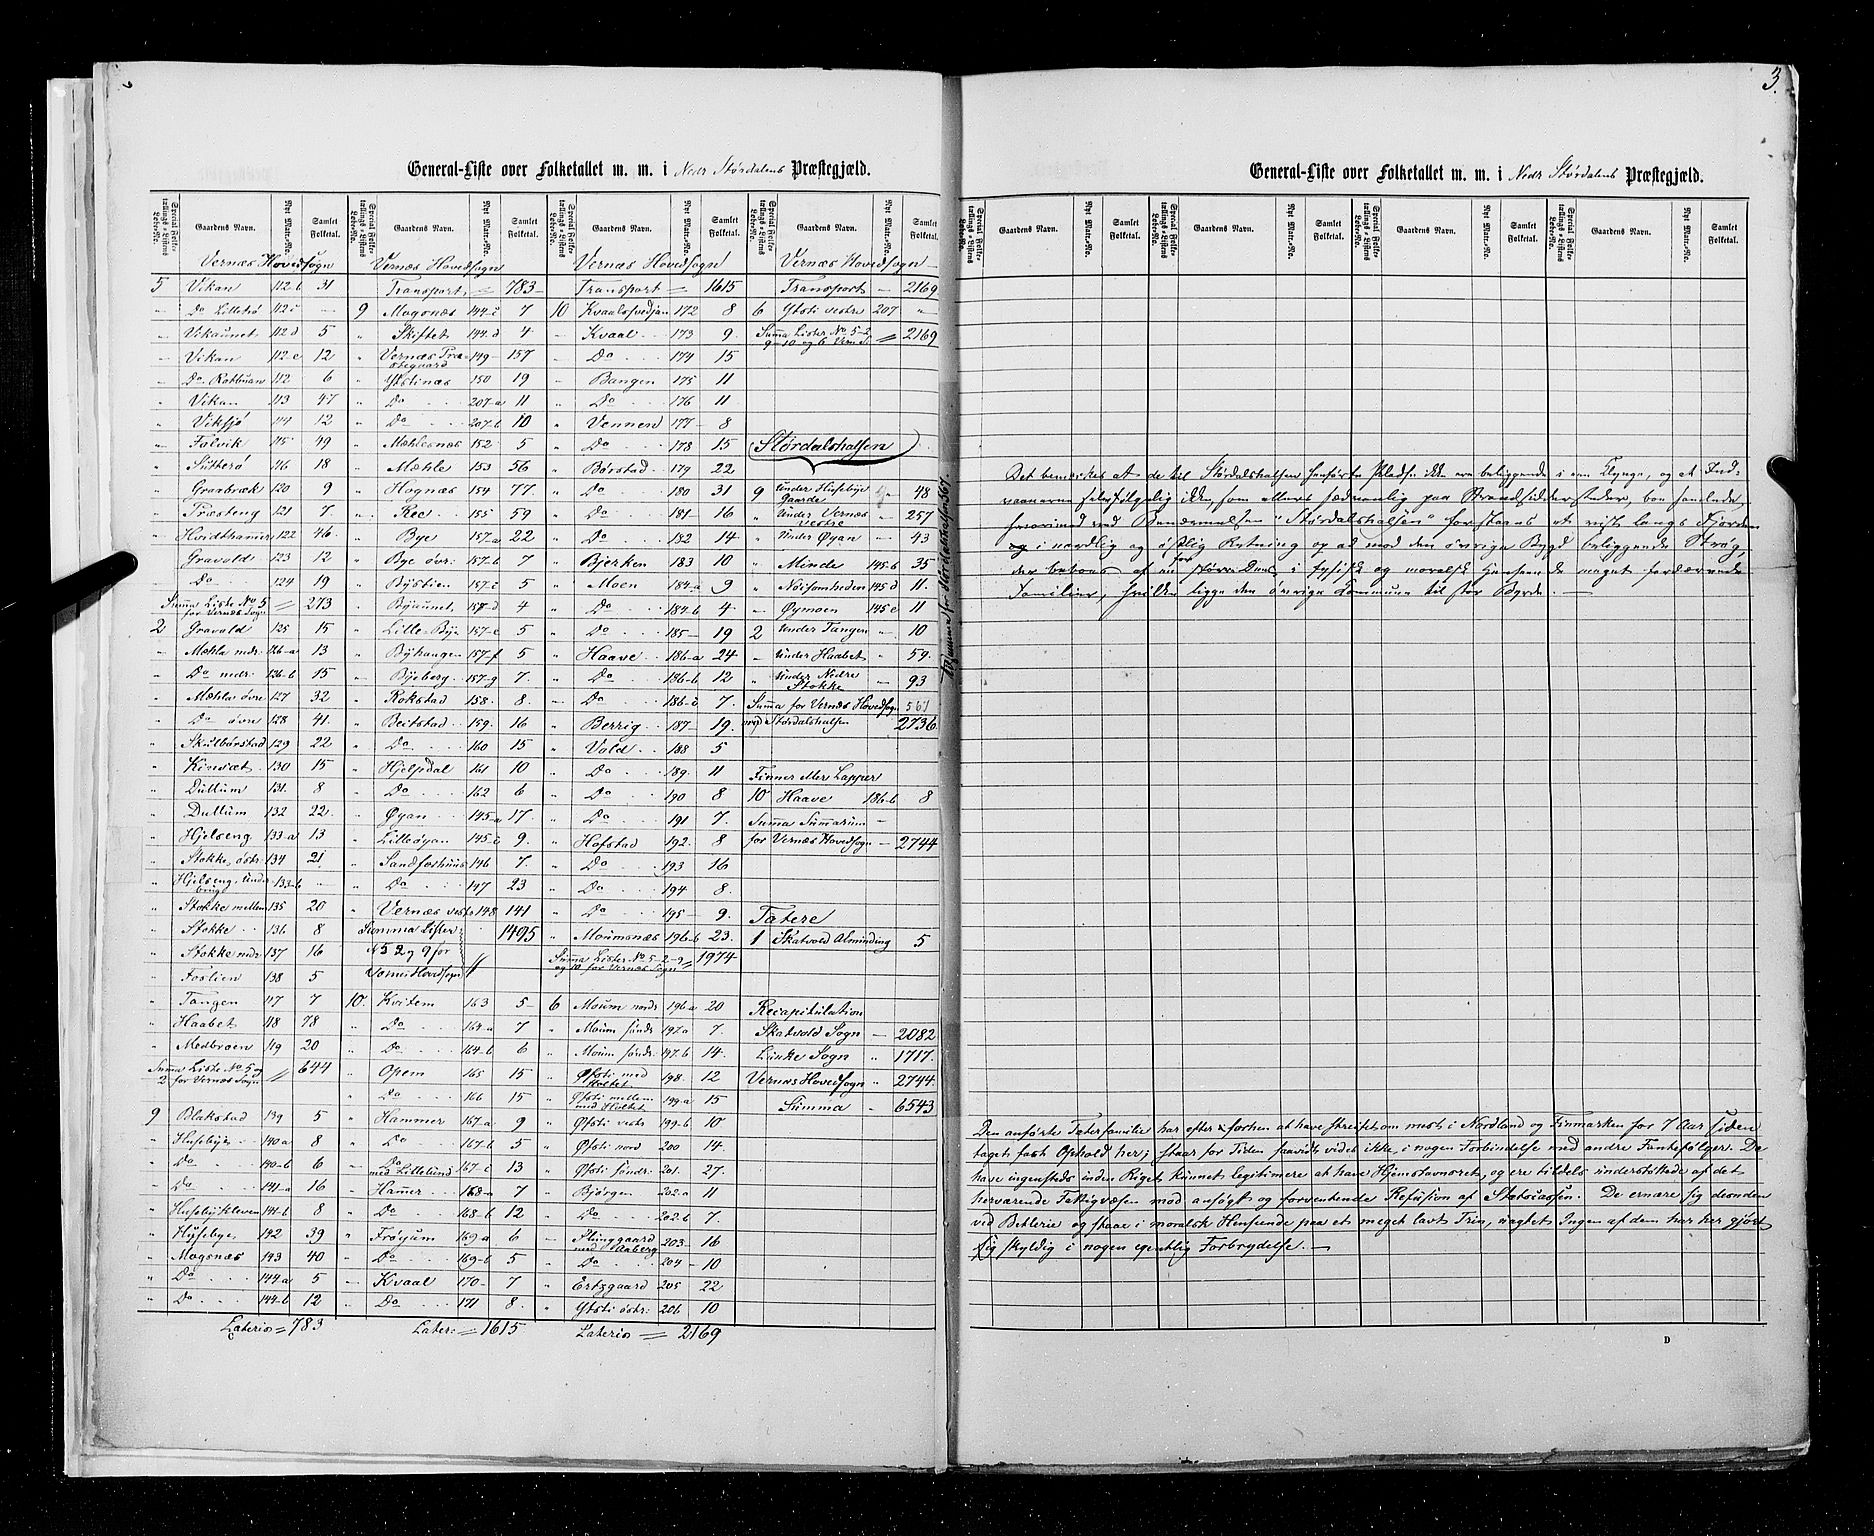 3.
General-Liste over Folketallet m. m. i Nedr Stördalens Præstegjæld.
Special Folketællings-Listens Løbe-No. Gaardens Navn. Nyt Matr.-No. Samlet Folketal. Special Folketællings-Listens Løbe-No. Gaardens Navn. Nyt Matr.-No. Samlet Folketal. Special Folketællings-Listens Løbe-No. Gaardens Navn. Nyt Matr.-No. Samlet Folketal. Special Folketællings-Listens Løbe-No. Gaardens Navn. Nyt Matr.-No. Samlet Folketal.
Vernæs Hovedsogn
5 Vikan 112-b 31
" Do Litletrø 112 c -
" Vikaunet 112 d 5
- Vikan 112-e 12
" Do. Rotbuan 112 6
" Vikan 113 47
" Viksjø 114 12
" Falvik 115 49
" Sutterø 116 18
" Graabræk 120 9
" Træsteng 121 7
" Hvidthamer 122 46
" Gravold 123 12
" Do 124 19
Summa Liste No 5 for Vernæs Sogn = 273
2 Gravold 125 15
" Mehla nedr. 126-a 13
" Do nedr. 126-b 15
" Mæhla øvre 127 32
" Do øvre 128 41.
" Skulbørstad 129 22
" Kirvæt 130 15
" Dullum 131. 8
" Dullum 132 22.
" Hjelseng 133-a 13
" Stokke, østr. 134 21.
" Hjelseng, Underbrug 133-b "
" Stokke mellem 135 20
" Stokke 136 8
" Stokke nedr. 137 16
" Foslien 138 5
" Tangen 117 7
" Haabet 118 78
" Medbroen 119 20
Summa Liste No 5 og 2 for Vernæs Sogn = 644
9 Blakstad 139 5
" Husebye 140 a 8
" Do 140-b 6
" Do 141-a 16
" Husebykleven 141-b 8
" Husebye 142 39
" Mogsnæs 143 40
" Do 144 a 5
" Do 144-b 12
Lateris = 783
Vernæs Hovedsogn
Transport = 783
9 Mogsnæs 144-c 7
" Skiftet 144-d 4
" Vernæs Præstegaard 149 157
" Ystinæs 150 19
" Do 207-a 11
" Do 207-b 10
" Mæhlesnæs 152 5
" Mæhle 153 56
" Hognæs 154 77.
" Ree 155 59
" Bye 157-a 22
" Bye øvr. 157-b 7
" Bystien 157-c 5
" Byaunet 157-d 4
" Lille-Bye 157-e 5
" Byhaugen 157-f 5
" Byeberg 157-g 7.
" Rokstad 158. 8.
" Beitstad 159. 16
" Do 160 15
" Hjelpdal 161 10
" Do 162 6
" Øyan 145-a 17.
" Lilleøyan 145-c 9.
" Sandfærhuus 146 7.
" Do 147 23
" Vernæs vestre 148 141
Summa Lister N 5 2 og 9 for Vernæs Hovedsogn 1495
10. Kvitem 163 5
" Do 164-a 7
" Do 164-b 6
" Opem 165 15
" Do 166 15
" Hammer 167-a 9
" Do 167-b 5
" Do med Lillelund 167-c 13
" Hamer 168-a 7
" Do 168-b 12
" Frøyum 169 a 6
" Do 169-b 5
" Kvaal 170 7
" Do 171 8.
Later: = 1615
Vernæs Hovedsogn
Transport = 1615
10 Kvaalsvedjan 172 8
- Kvaal 173 9.
" Do 174 15
" Bangen 175 11
" Do 176 11
" Vennen 177 8
" Do 178 15
" Børstad 179 22
" Do 180 31
" Do 181 16
" Do 182 14
" Bjerken 183 10
" Moen 184-a 9
" Do 184-b 4
" Do 185 19
" Haave 186-a 24
" Do 186-b 12
" Do 186-c 7.
" Berrig 187 19.
" Vold 188 5
" Do 189. 11
" Do 190 8
" Do 191 7.
" Hofstad 192. 8
" Do 193 16
" Do 194 8.
" Do 195 9.
" Moumsnæs 196-b 23.
Summa Lister No 5-2-9 og 10 for Vernæs Sogn = 1974
6 Moum nordr. 196 a 20
" Moum søndr. 197.a 7.
" Moum søndr. 197-b 14.
" Øfsti med Holtet 198. 12
" Øfsti mellem med Holtet 199-a 15
" Øfsti vestr. 199-b 10
" Øfsti nord 200 14.
" Øfsti søndr. 201. 27.
" Bjørgen 202.a 11
" Do 202-b 7.
" Stinggaard med Aaberg 203 16
" Do 204 10
" Ertzgaard 205 22
" Ystsi østr. 206 10
Lateris = 2169
Vernæs Hovedsogn
Transport 2169
6 Ystsi vestre 207 "
Summa Lister No 5-2 9-10 og 6 Vern S. = 2169
Størdalshalsen
9 Under Husebye gaarde " 48
" Under Vernæs vestre " 257
" Under Øyan - 43
" Minde 145-b 35
" Nøisomheden 145 d 11.
" Øymoen 145 e 11
2 Under Tangen " 10
" Under Haabet " 59.
" Under Nedre Stokke " 93
Summa for Vernæs Hovedsogn 561
med Størdalshalsen 2736
Finner eller Lapper
10 Haave 186-b 8
Summa Summarum
for Vernæs Hovedsogn 2744
Tatere
1 Skatvold Alminding 5
Recapitulation
Skatvold Sogn 2082
Lunke Sogn " 1717.
Vernæs Hovedsogn " 2744
Summa 6543
General-Liste over Folketallet m. m. i Nedr Stördalens Præstegjæld.
Special Folketællings-Listens Løbe-No. Gaardens Navn. Nyt Matr.-No. Samlet Folketal. Special Folketællings-Listens Løbe-No. Gaardens Navn. Nyt Matr.-No. Samlet Folketal. Special Folketællings-Listens Løbe-No. Gaardens Navn. Nyt Matr.-No. Samlet Folketal. Special Folketællings-Listens Løbe-No. Gaardens Navn. Nyt Matr.-No. Samlet Folketal.
Det bemærkes at de til Størdalshalsen henførte Pladse ikke ere beliggende i een Klynge, og at Ind-
vaanerne selvfølgelig ikke, som ellers sædvanlig paa Strandsidderstæder, boe samlede,
hvorimod ved Benævnelsen "Størdalshalsen" forstaaes et vist langs Fjorden
og i nordlig og østlig Retning op ad mod den øvrige Bygd beliggende Strøg,
der beboes af en for større Deel i fysisk og moralsk Henseende meget fordærvede
Familier, hvilke ligge den øvrige Kommune til stor Byrde.
Den anførte Taterfamilie har efter forhen at have streifet om mest i Nordland og Finmarken for 7 Aar siden
taget fast Ophold her; staar for Tiden saavidt vides ikke i nogen Forbindelse med andre Fantefølger. De
have ingensteds inden Riget kunnet legitimere at have Hjemstavnsret, og ere tildels understøttede af det
herværende Fattigvæsen mod ansøgt og forventende Refusion af Statscassen. De ernære sig desuden
ved Betlerie og staae i moralsk Henseende paa et meget lavt Trin, uagtet Ingen af dem har her gjort
sig skyldig i nogen egentlig Forbrydelse.
D